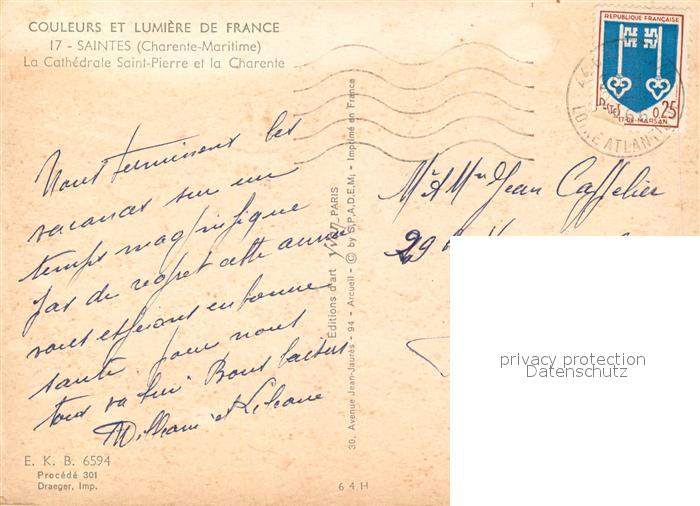 COULEURS ET LUMIÈRE DE FRANCE
17 - SAINTES (Charente-Maritime)
La Cathédrale Saint-Pierre et la Charente
RÉPUBLIQUE FRANÇAISE
0,25
MONT-DE-MARSAN
LOIRE ATLANTIQUE
Nous terminons les
vacances sur un
temps magnifique
pas de regret cette année
vous espérant en bonne
santé. pour nous
tous va bien Bons baisers
William et Liliane
Editions d'art YVON, PARIS
30, Avenue Jean-Jaurès - 94 - Arcueil - © by S.P.A.D.E.M. - Imprimé en France
Mr & Mme Jean Caffelier
29
privacy protection
Datenschutz
E. K. B. 6594
Procédé 301
Draeger, Imp.
6 4 H